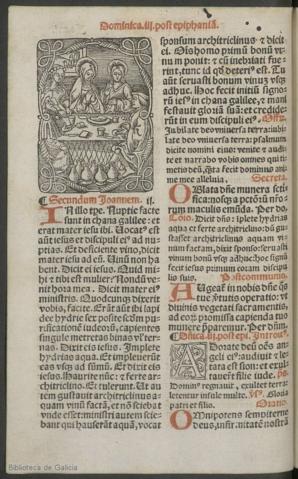 Dominica.iij.post epiphaniã.
¶ Secundum Joannem ij.
IN illo tp̃e. Nuptie facte
sunt in chana galilee: ⁊
erat mater iesu ibi. Uocatꝰ est
aũt iesus et discipuli eiꝰ ad nu
ptias. Et deficiente vino, dicit
mater iesu ad eũ. Uinũ non ha
bent. Dicit ei iesus. Quid mi-
hi ⁊ tibi est mulier? Nondũ ve-
nit hora mea. Dicit mater eiꝰ
ministris. Quodcunq̃ dixerit
vobis, facite. Erãt aũt ibi lapi
dee hydrie sex posite scdm pu-
rificationẽ iudeorũ, capientes
singule metretas binas vl' ter-
nas. Dixit eis iesus. Implete
hydrias aqua. Et impleuerũt
eas vsq̃ ad sũmũ. Et dixit eis
iesus. Haurite nũc: ⁊ ferte ar-
chitriclino. Et tulerunt. Ut au
tem gustauit architriclinus a-
quam vinũ factã, et nõ sciebat
vnde esset: ministri autem scie-
bant qui hauserãt aquã, vocat
sponsum architriclinus ⁊ dicit
ei. Ois homo primũ bonũ vi-
num ponit: ⁊ cũ inebriati fue-
rint, tunc id qd deteriꝰ est. Tu
aũt seruasti bonum vinuʒ vsq̃
adhuc. Hoc fecit initiũ signo-
rũ iesꝰ in chana galilee, ⁊ mani
festauit gloriã suã: et credide-
rũt in eum discipuli eiꝰ. Offr.
Jubilate deo vniuersa terra: iubi-
late deo vniuersa terra: psalmum
dicite nomini eius: venite ⁊ audi-
te et narrabo vobis omnes qui ti-
metis deũ, q̃ta fecit dominus ani-
me mee alleluia. Secreta.
OBlata dñe munera scti-
fica: nosq̃ a pctõrũ nr̃o
rum maculis emũda. Per do.
Cõio. Dicit dñs: implete hydrias
aqua et ferte architriclino: dũ gu-
stasset architriclinus aquam vi-
num factam, dixit sponso: seruasti
vinum bonũ vsq̃ adhuc: hoc signũ
fecit iesus primum coram discipu
lis suis. Postcommunio.
AUgeat in nobis dñe q̃s
tue v̾tutis operatio: vt
diuinis vegetati sacramentis,
ad eoꝝ promissa capienda tuo
munere p̃paremur. Per dñm.
¶ Dñica.iiij.post epi. Introitꝰ.
ADorate deũ oẽs an-
geli eiꝰ: audiuit ⁊ le-
tata est sion: et exul-
tauerũt filie iude. ps̃.
Dominꝰ regnauit, exultet terra:
letentur insule multe. v̾s. Gloria
patri et filio. Oratio
OMnipotens sempiterne
deus, infirmitatẽ nostrã
Biblioteca de Galicia